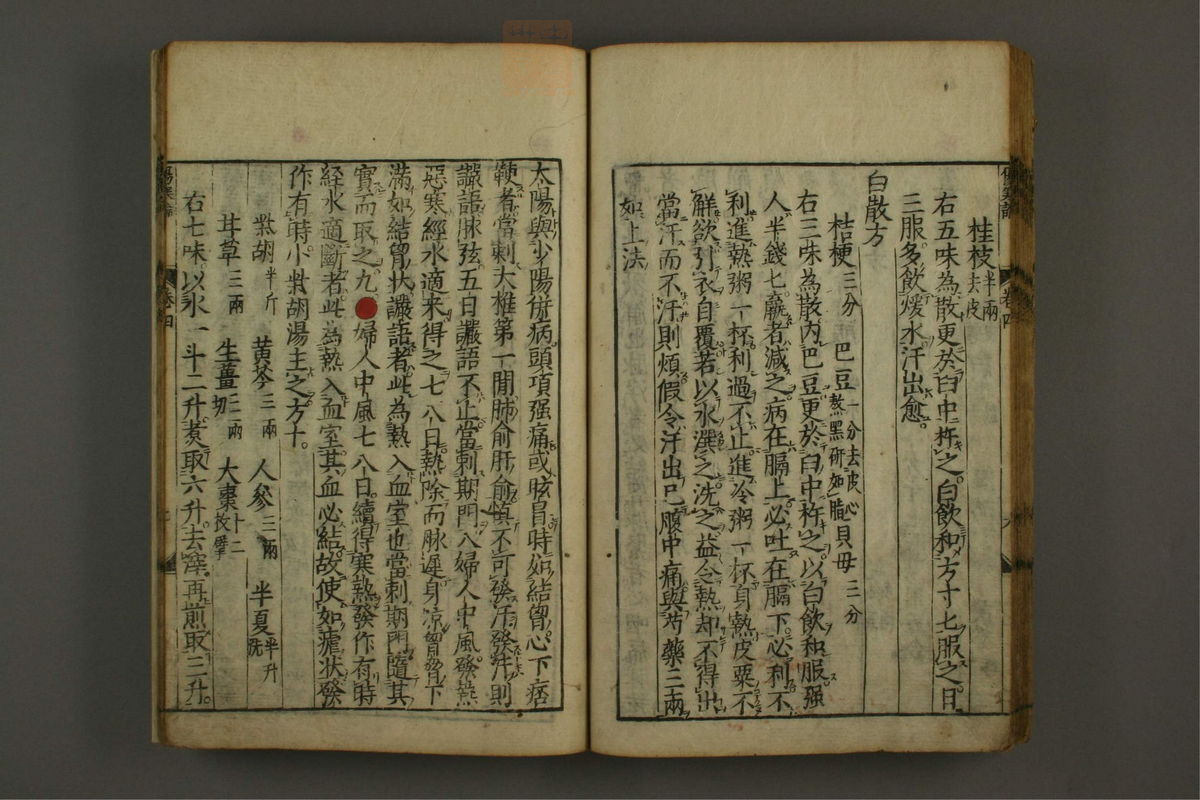 桂枝半兩去皮
右五味為散更於臼中杵之白飲和方寸匕服之日
三服多飲煖水汗出愈
白散方
桔梗三分 巴豆一分去皮心熬黑研如脂 貝母三分
右三味為散內巴豆更於臼中杵之以白飲和服强
人半錢匕羸者減之病在膈上必吐在膈下必利不
利進熱粥一杯利過不止進冷粥一杯身熱皮粟不
解欲引衣自覆若以水潠之洗之益令熱却不得出
當汗而不汗則煩假令汗出已腹中痛與芍藥三兩
如上法
太陽與少陽併病頭項强痛或眩冒時如結胷心下痞
鞕者當刺大椎第一間肺俞肝俞慎不可發汗發汗則
譫語脉弦五日譫語不止當刺期門八婦人中風發熱
惡寒經水適来得之七八日熱除而脉遲身凉胷脅下
滿如結胷状譫語者此為熱入血室也當刺期門隨其
實而取之九婦人中風七八日續得寒熱發作有時
經水適斷者此為熱入血室其血必結故使如瘧状發
作有時小柴胡湯主之方十
柴胡半斤 黄芩三兩 人參三兩 半夏半升洗
甘草三兩 生薑三兩切 大棗十二枚擘
右七味以水一斗二升煮取六升去滓再煎取三升
傷寒論 卷四
傷寒論 卷四